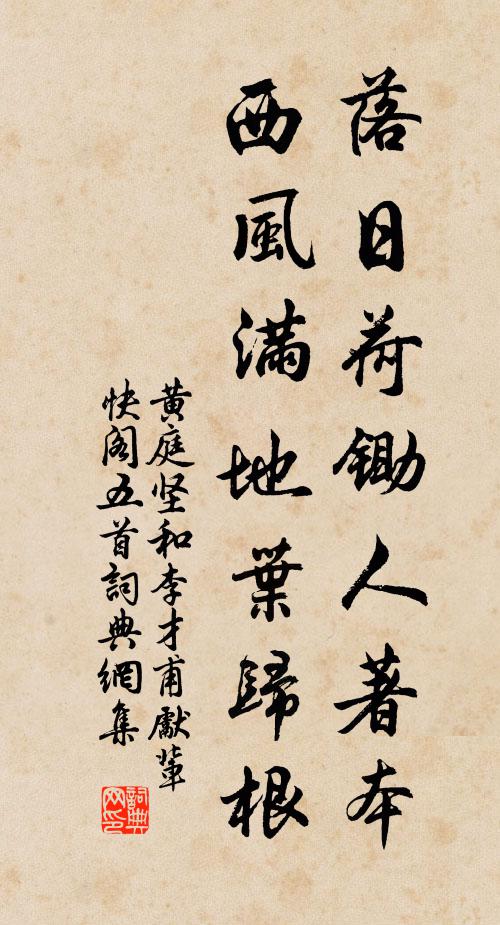 落日荷鋤人著本
西風滿地葉歸根
黄庭坚和李才甫獻輩
快阁五首詞典網集
詞典
网印